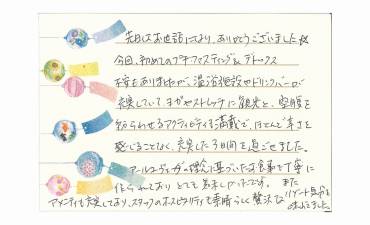 先日はお世話になり、ありがとうございました
今回、初めてのプチファスティング&デトックス
不安もありましたが、温浴施設やドリンクバーが
充実していて ヨガやストレッチに観光と、空腹を
紛らわせるアクティビティも満載で、ほとんど辛さを
感じることなく、充実した3日間を過ごせました。
アーユルヴェーダの理念に基づいたお食事も丁寧に
作られており とても美味しかったです。また
アメニティも充実しており、スタッフのホスピタリティも素晴らしく贅沢な
リゾート気分を
味わえました。